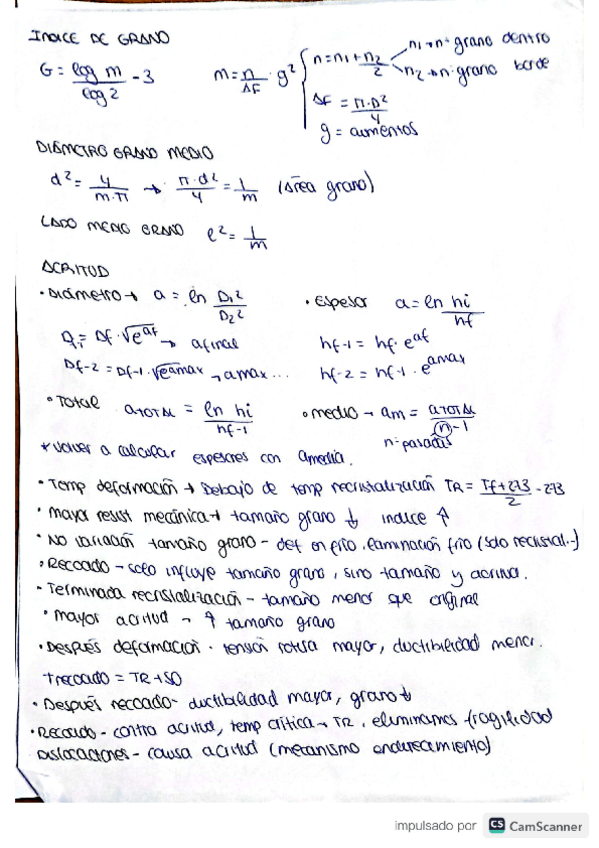 INDICE DE GRANO
G = log m / log 2 - 3
m = n/ΔF · g² { n = n1 + n2/2 → n1 → nº grano dentro
n2 → nº grano borde
ΔF = π·D²/4
g = aumentos
DIÁMETRO GRANO MEDIO
d² = 4/m·π → π·d²/4 = 1/m (área grano)
LADO MEDIO GRANO l² = 1/m
ACRITUD
· Diámetro → a = ln D1²/D2²
· Espesor a = ln hi/hf
Di = Df · √e^af → a final
hf-1 = hf · e^af
Df-2 = Df-1 · √e^amax → amax ...
hf-2 = hf-1 · e^amax
· Total aTOTAL = ln hi/hf-1
· medio → am = aTOTAL/n-1
n = pasadas
* volver a calcular espesores con amedia.
· Temp deformación → Debajo de temp recristalización TR = Tf+273/2 - 273
· Mayor resist mecánica → tamaño grano ↓ indice ↑
· No variación tamaño grano - def en frío. laminación frío (solo recristal.)
· Recocido - solo influye tamaño grano, sino tamaño y acritud.
· Terminada recristalización - tamaño menor que original
· mayor acritud → ↑ tamaño grano
· Después deformación · tensión rotura mayor, ductibilidad menor.
Trecocido = TR + 50
· Después recocido - ductibilidad mayor, grano ↓
· Recocido - contra acritud, temp crítica → TR. eliminamos fragilidad
Dislocaciones - causa acritud (mecanismo endurecimiento)
impulsado por CS CamScanner